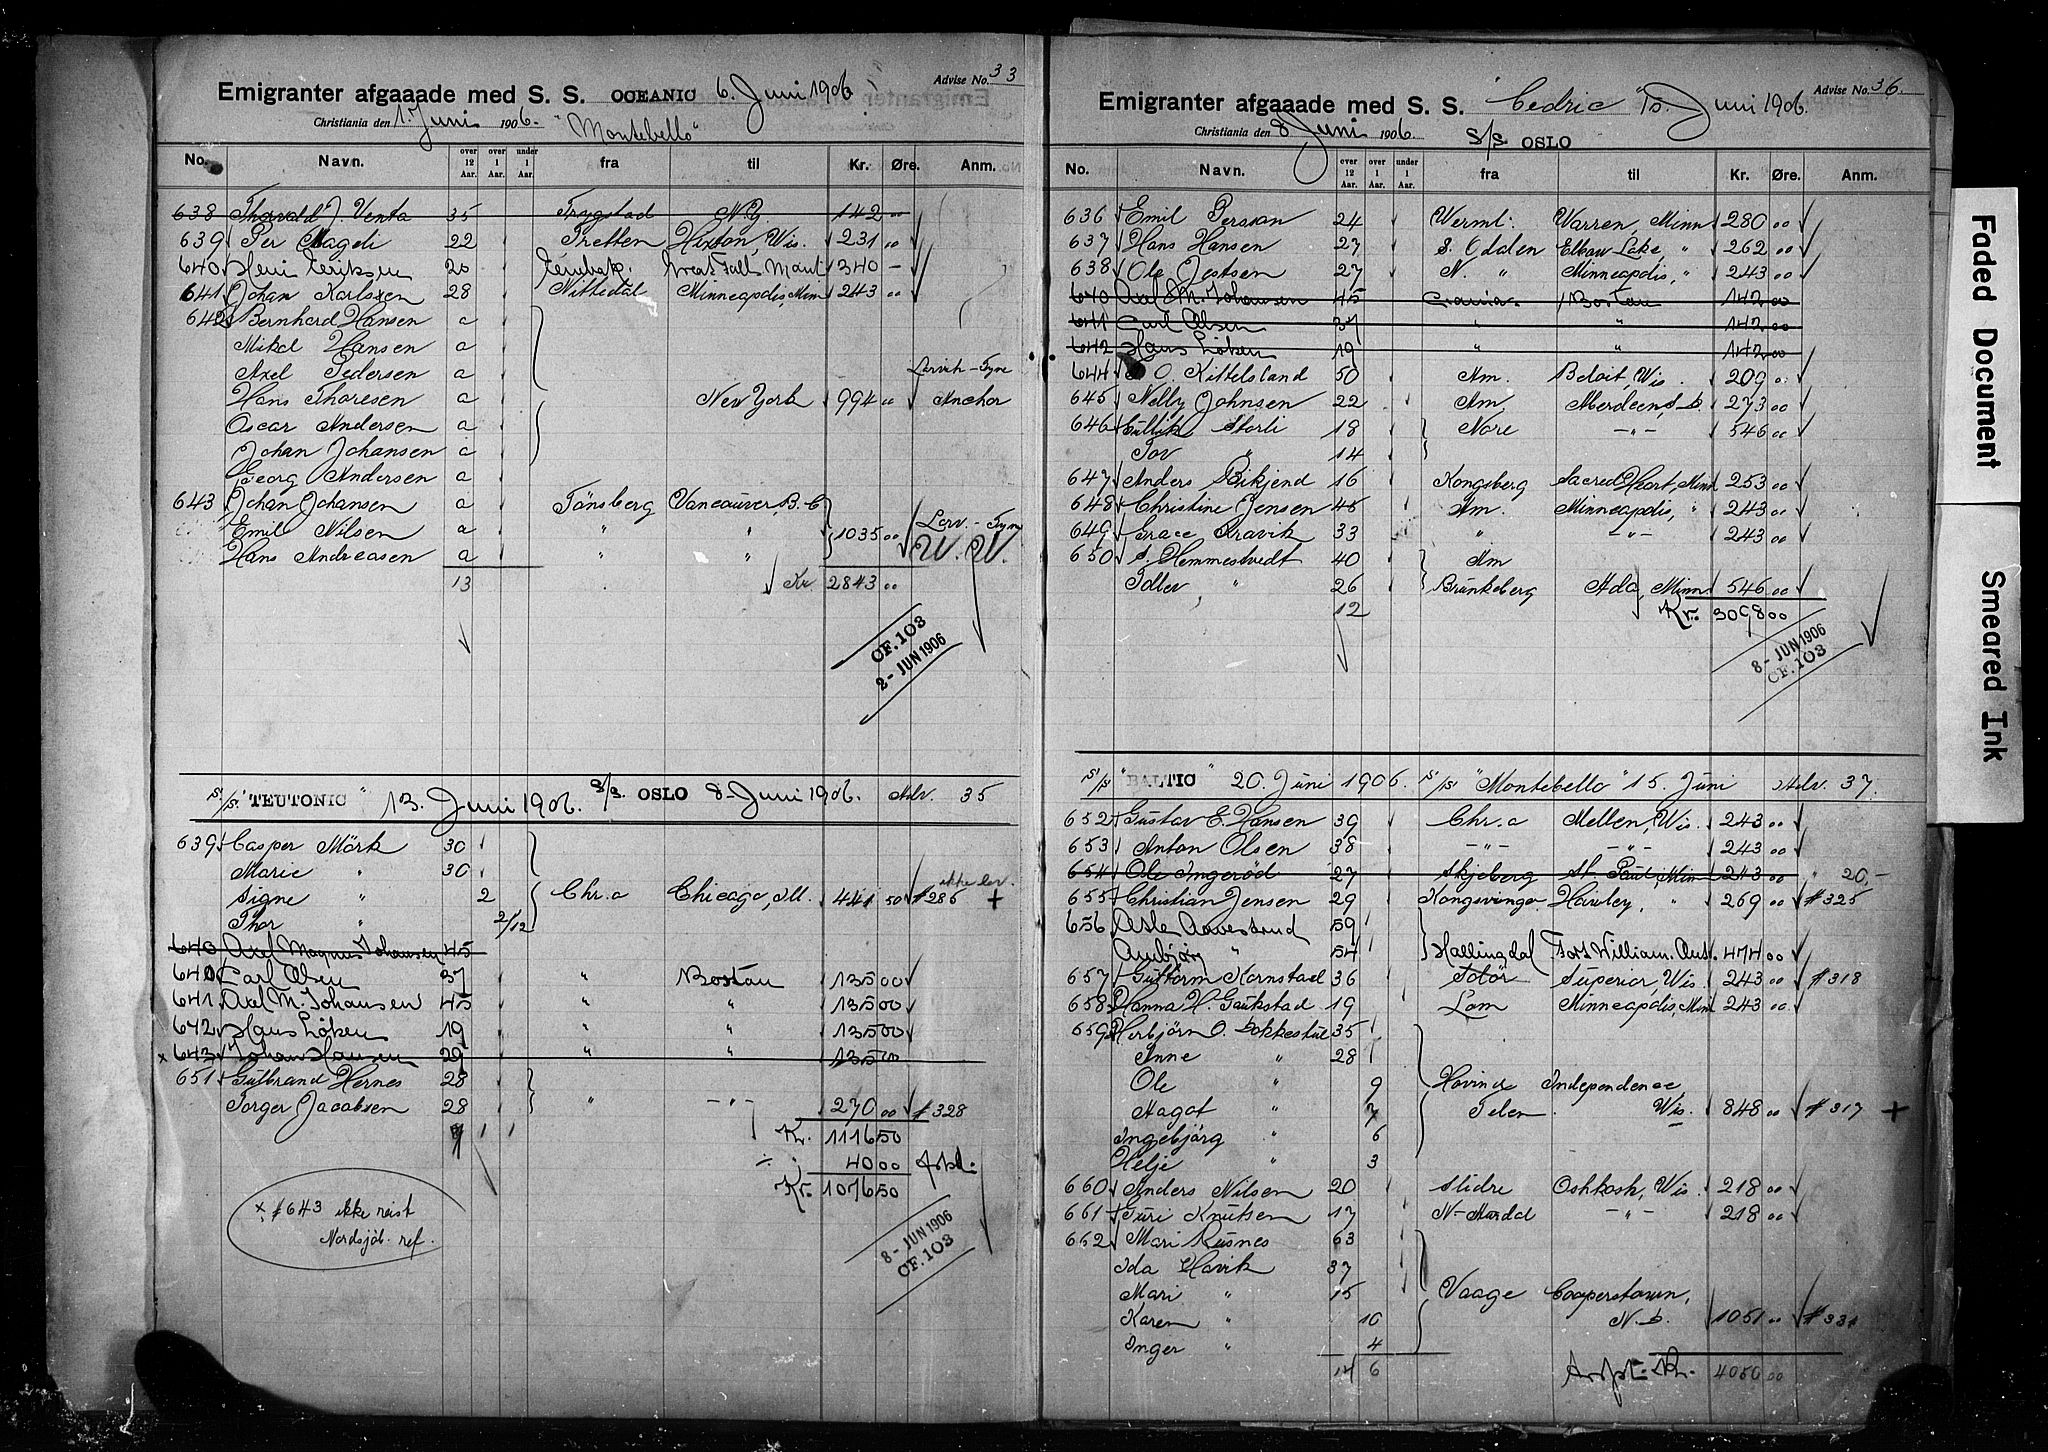 Advise No. 33
Emigranter afgaaade med S. S. OCEANIC 6. Juni 1906
Christiania den 1. Juni 1906. "Montebello"
No. Navn. over 12 Aar. over 1 Aar. under 1 Aar. fra til Kr. Øre. Anm.
638 Thorvald J. Venta 35 Trygstad N.Y. 142 00
639 Per Magdi 22 Tretten Hixton Wis. 231 00
640 Eriksen 20 Great Falls Mont 340 -
641 Johan Karlsen 28 Nittedal Minneapolis, Min 243 00
642 Bernhard Hansen a
Mikal Hansen a
Axel Pedersen a Lervik - Tyne
Hans Thoresen a New York 994 00 Anchor
Oscar Andersen a
Johan Johansen a
Georg Andersen a
643 Johan Johansen a Tönsberg Vancouver, B.C.
Emil Nilsen a " " 1035 00 Lerv. - Tyne
Hans Andreasen a " " W. W.
13 Kr 2843 00
CF. 103
2 - JUN 1906
S/S. "TEUTONIC" 13. Juni 1906. S/S. OSLO 8 - Juni 1906. Adv. 35
639 Casper Mörk 30
Marie " 30
Signe " 2 Chr.a Chicago, Ill. 441 50 # 286 + ikke lev.
Thor " 2/12
640 Axel Magnus Johansen 45
640 Carl Olsen 37 " Boston 135 00
641 Axel M. Johansen 45 " " 135 00
642 Hans Löken 19 " " 135 00
x 643 Johan Hansen 29 " " 135 00
651 Gulbrand Hernes 28
Torger Jacobsen 28 " - " - 270 00 # 328
9 1 1 Kr. 1116 50
÷ 40 00
Kr. 1076 50
x # 643 ikke reist
Nordsjöb. ref.
8 - JUN 1906
CF. 103
Advise No. 36.
Emigranter afgaaade med S. S. "Cedric" 15. Juni 1906.
Christiania den 8 Juni 1906. S/S. OSLO
No. Navn. over 12 Aar. over 1 Aar. under 1 Aar. fra til Kr. Øre. Anm.
636 Emil Persson 24 Werml. Warren, Minn 280 00
637 Hans Hansen 27 S. Odalen Elbow Lake, " 262 00
638 Ole Jestsen 27 N. " Minneapolis, " 243 00
640 Axel M. Johansen 45 Boston 142 00
641 Carl Olsen 37 " " 142 00
642 Hans Löken 19 " " 142 00
644 O. Kittelsland 50 Am. Beloit, Wis. 209
645 Nelly Johnsen 22 Am. Aberdeen, S.D. 273 00
646 Gullik Storli 18 Nore - " - 546 00
Tov " 14
647 Anders Bikjend 16 Kongsberg Sacred Heart, Minn 253 00
648 Christine Jensen 45 Am. Minneapolis, " 243 00
649 Grace Kravik 33 " - " - 243 00
650 S. Hemmestvedt 40 Am
Tollev " 26 Brunkeberg Ada, Minn 546 00
12 Kr. 3098 00
8 - JUN 1906
CF. 103
S/S "BALTIC" 20. Juni 1906. S/S "Montebello" 15. Juni Adv. 37.
652 Gustav E. Hansen 39 Chr.a Mellen, Wis. 243 00
653 Anton Olsen 38 - " - - " - 243 00
654 Ole Ingeröd 27 Skjeberg St. Paul, Min 243 00 20,-
655 Christian Jensen 29 Kongsvinger Hawley, " 269 00 # 325
656 Asle Aavestrud 59
" 54 Hallingdal Fort William. Ont. 474 00
657 Guttorm Kornstad 36 Totör Superior, Wis. 243 00 # 318
658 Hanna H. Gaukstad 19 Lom Minneapolis, Min 243 00
659 Herbjörn O. Bokkestul 35
Anne " 28
Ole " 9 Hovin i Independence
Aagot " 7 Telem. Wis. 848 00 # 317 +
Ingebjörg " 6
Helje " 3
660 Anders Nilsen 20 Slidre Oshkosh, Wis. 218 00
661 Guri Knutsen 17 N-Aurdal - " - 218 00
662 Mari Rusnes 63
Ida Havik 37
Mari " 15 Vaage Cooperstown,
Karen " 10 N.D. 1051 00 # 331
Inger " 4
14 6 Kr. 4050 00
Faded Document
Smeared Ink